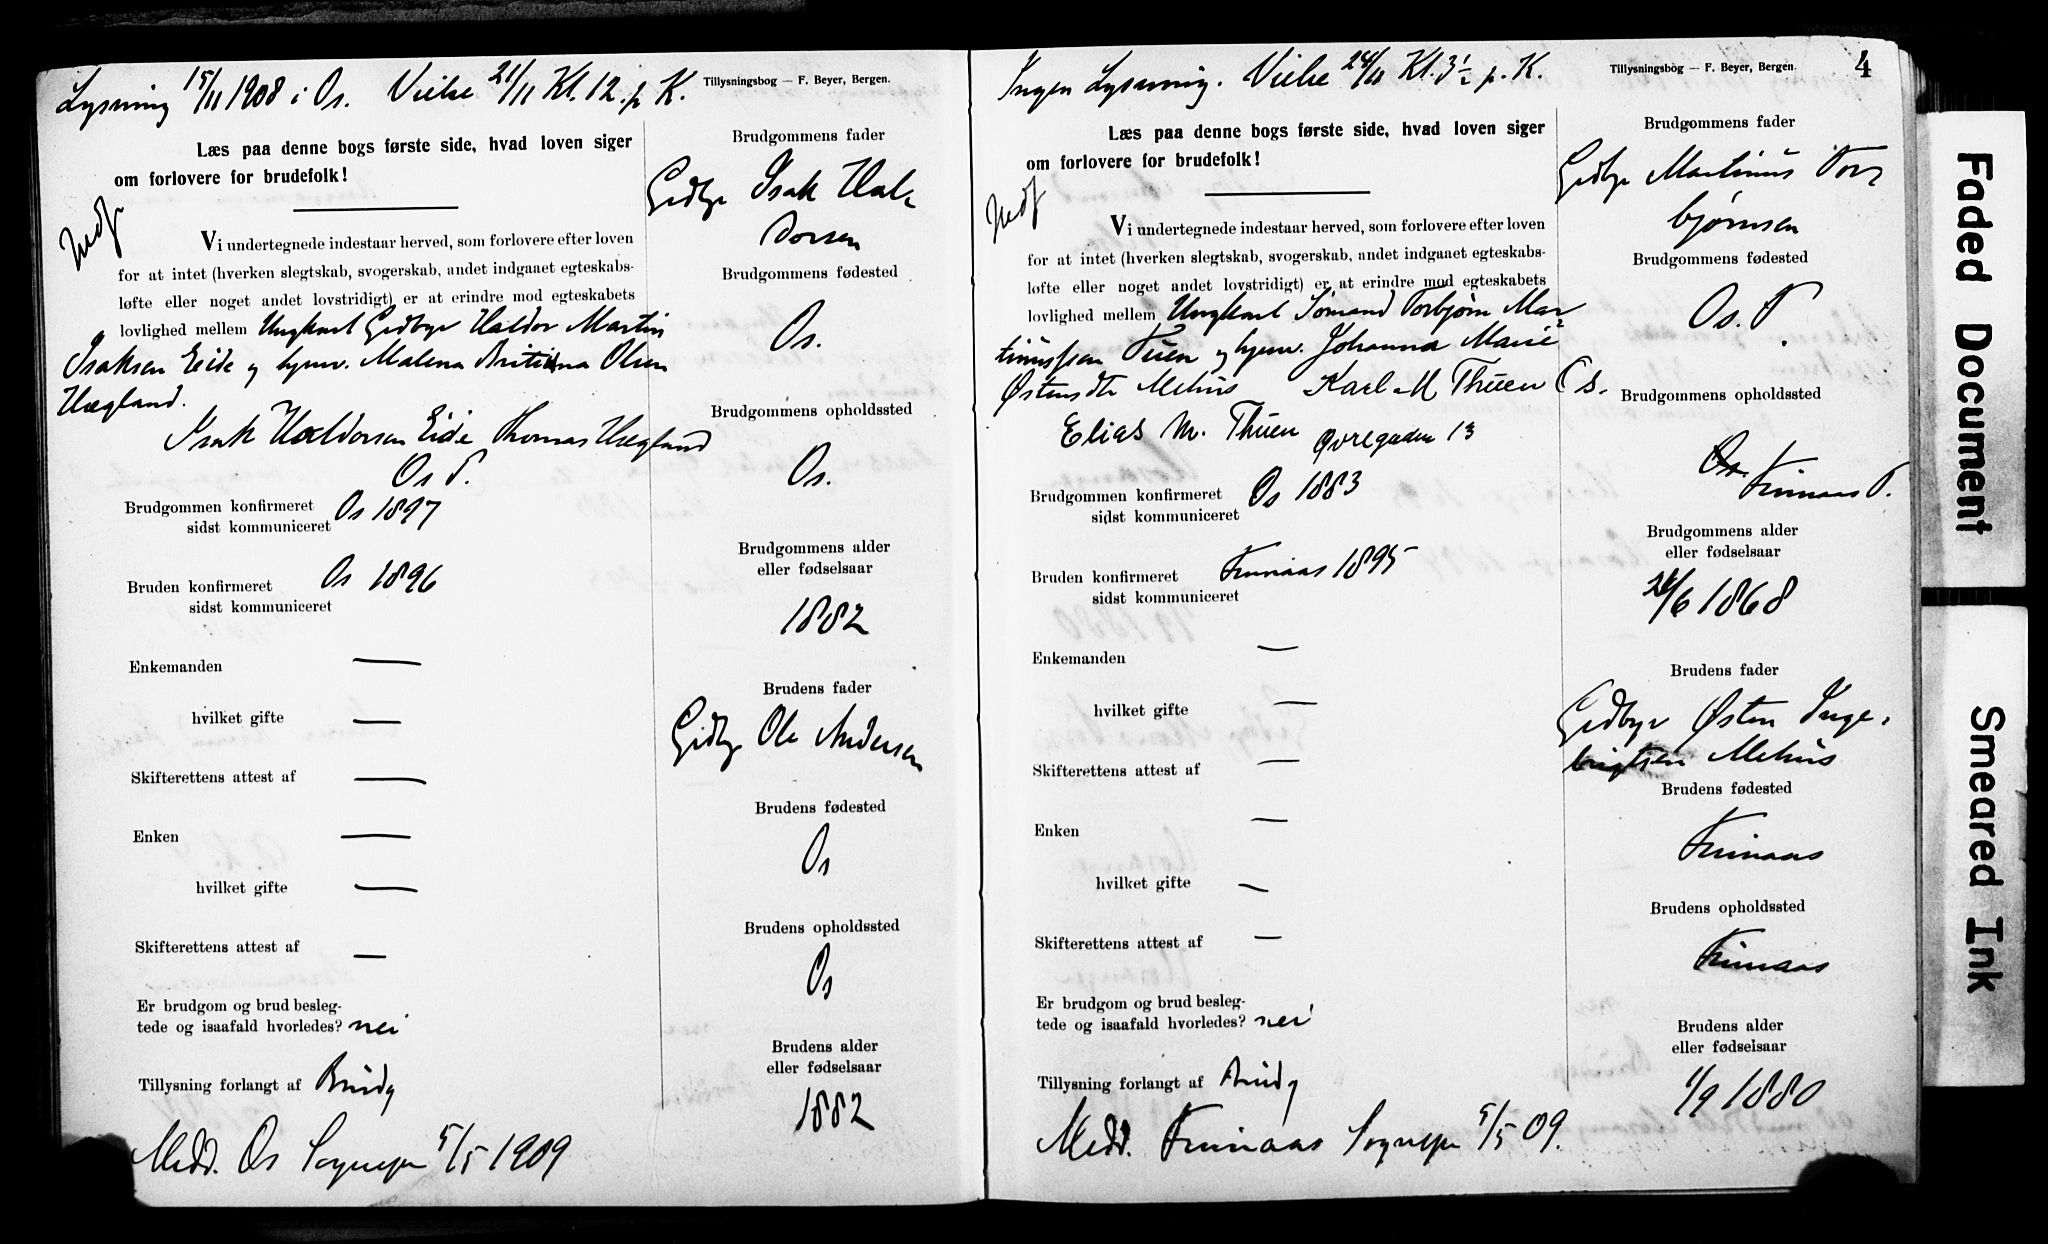 Lysning 15/11 1908 i Os. Vielse 21/11 Kl. 12. p K.
Tillysningsbog — F. Beyer, Bergen.
Læs paa denne bogs første side, hvad loven siger
om forlovere for brudefolk!
Indf
Vi undertegnede indestaar herved, som forlovere efter loven
for at intet (hverken slegtskab, svogerskab, andet indgaaet egteskabs-
løfte eller noget andet lovstridigt) er at erindre mod egteskabets
lovlighed mellem Ungkarl Grdbgr Haldor Martin
Isaksen Eide og pynr. Malena Britiana Olsen
Hægland.
Isak Haldorsen Eide Thomas Hægland
Os P.
Brudgommen konfirmeret Os 1897
sidst kommuniceret
Bruden konfirmeret Os 1896
sidst kommuniceret
Enkemanden —
hvilket gifte —
Skifterettens attest af —
Enken —
hvilket gifte —
Skifterettens attest af —
Er brudgom og brud besleg-
tede og isaafald hvorledes? nei
Tillysning forlangt af Brudg
Medd. Os Sognepr 5/5 1909
Brudgommens fader
Grdbgr Isak Hal-
dorsen
Brudgommens fødested
Os.
Brudgommens opholdssted
Os.
Brudgommens alder
eller fødselsaar
1882
Brudens fader
Grdbgr Ole Andersen
Brudens fødested
Os
Brudens opholdssted
Os
Brudens alder
eller fødselsaar
1882
Ingen Lysning. Vielse 24/11 Kl. 3½ p. K.
Tillysningsbog — F. Beyer, Bergen.
4
Læs paa denne bogs første side, hvad loven siger
om forlovere for brudefolk!
Indf
Vi undertegnede indestaar herved, som forlovere efter loven
for at intet (hverken slegtskab, svogerskab, andet indgaaet egteskabs-
løfte eller noget andet lovstridigt) er at erindre mod egteskabets
lovlighed mellem Ungkarl Sømand Torbjørn Mar-
tinussen Tuen og pynr. Johanna Marie
Østensdtr Mehus Karl M Thuen Os.
Elias M. Thuen Øvregaden 13
Brudgommen konfirmeret Os 1883
sidst kommuniceret
Bruden konfirmeret Finnaas 1895
sidst kommuniceret
Enkemanden —
hvilket gifte —
Skifterettens attest af —
Enken —
hvilket gifte —
Skifterettens attest af —
Er brudgom og brud besleg-
tede og isaafald hvorledes? nei
Tillysning forlangt af Brudg
Medd. Finnaas Sognepr 5/5 09.
Brudgommens fader
Grdbgr Martinus Tor-
bjørnsen
Brudgommens fødested
Os. P.
Brudgommens opholdssted
Os. Finnaas P.
Brudgommens alder
eller fødselsaar
26/6 1868
Brudens fader
Grdbgr Østen Inge-
brigtsen Mehus
Brudens fødested
Finnaas
Brudens opholdssted
Finnaas
Brudens alder
eller fødselsaar
1/9 1880
Faded Document
Smeared Ink